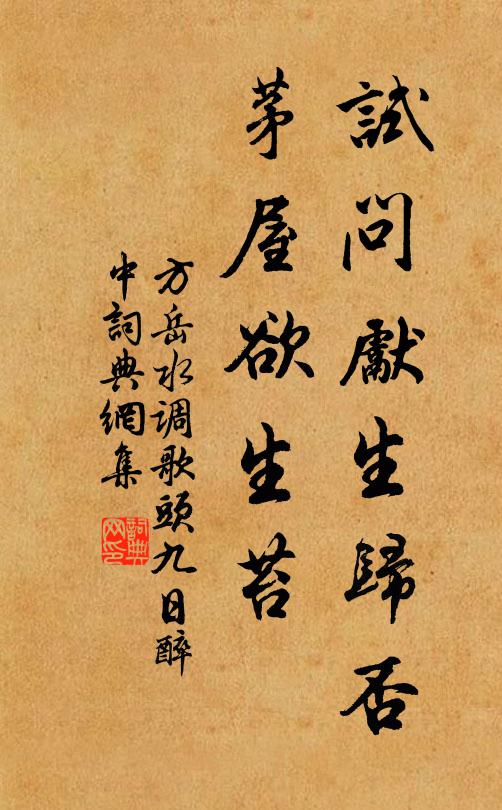 試問獻生歸否
茅屋欲生苔
方岳水调歌頭九日醉
中詞典網集
詞典网印